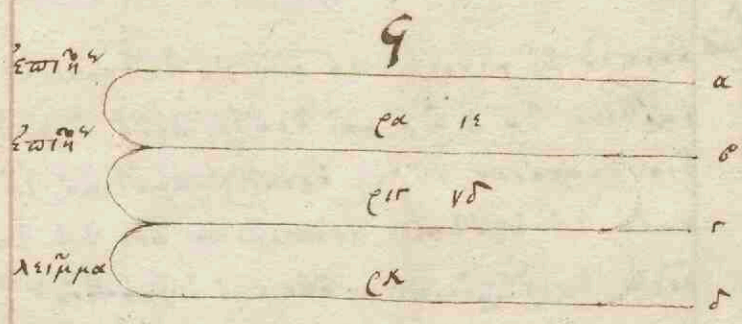 ϟ
ἐπὶηʹ α
ρα ιε
ἐπὶηʹ β
ριγ νδ
γ
λεῖμμα
ρκ
δ